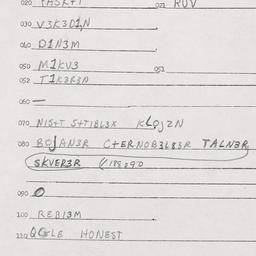 020 TASK+I 021 RUV
030 V3K3D1,N
040 D1N3M
050 M1KV3 051
052 T1K3R3N
060 —
070 N1S+T S+T1BL3X KLOJ2N
080 BOJAN3R C+ERNOB3L83R TALN3R
SKVER3R
090 O
100 REB13M
110 HONEST